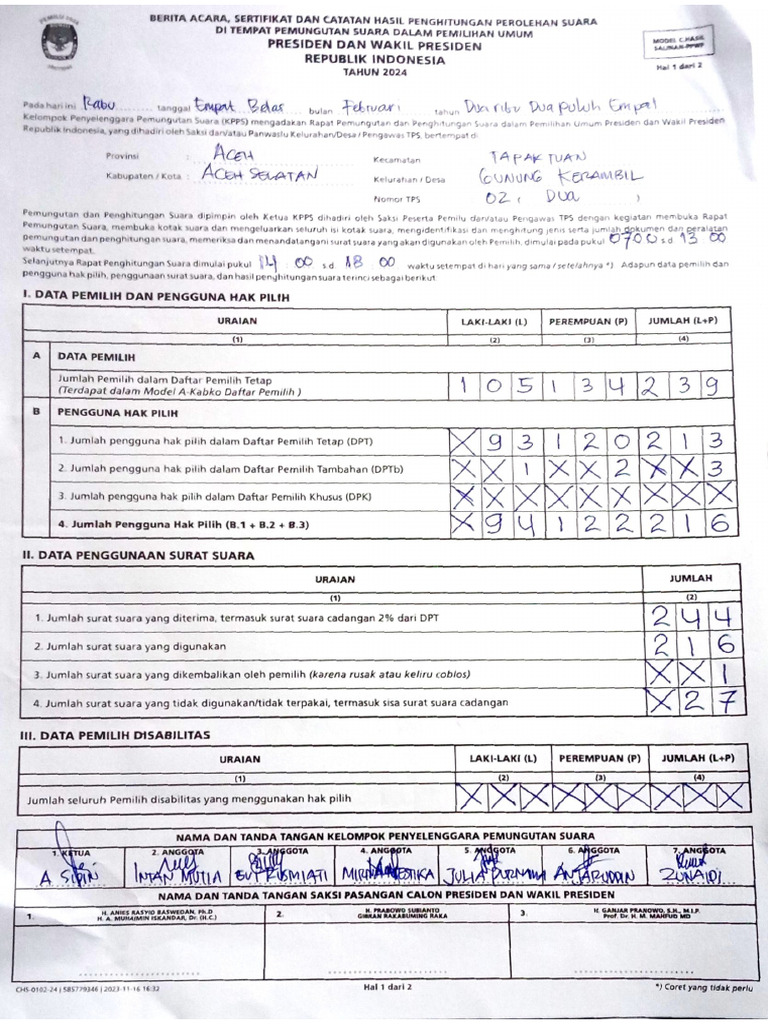 BERITA ACARA, SERTIFIKAT DAN CATATAN HASIL PENGHITUNGAN PEROLEHAN SUARA
DI TEMPAT PEMUNGUTAN SUARA DALAM PEMILIHAN UMUM
PRESIDEN DAN WAKIL PRESIDEN
REPUBLIK INDONESIA
TAHUN 2024
MODEL C.HASIL
SALINAN-PPWP
Hal 1 dari 2
Pada hari ini Rabu tanggal Empat Belas bulan Februari tahun Dua ribu Dua puluh Empat
Kelompok Penyelenggara Pemungutan Suara (KPPS) mengadakan Rapat Pemungutan dan Penghitungan Suara dalam Pemilihan Umum Presiden dan Wakil Presiden
Republik Indonesia, yang dihadiri oleh Saksi dan/atau Panwaslu Kelurahan/Desa / Pengawas TPS, bertempat di:
Provinsi : ACEH Kecamatan : TAPAK TUAN
Kabupaten / Kota : ACEH SELATAN Kelurahan / Desa : GUNUNG KERAMBIL
Nomor TPS : 02 ( DUA )
Pemungutan dan Penghitungan Suara dipimpin oleh Ketua KPPS dihadiri oleh Saksi Peserta Pemilu dan/atau Pengawas TPS dengan kegiatan membuka Rapat
Pemungutan Suara, membuka kotak suara dan mengeluarkan seluruh isi kotak suara, mengidentifikasi dan menghitung jenis serta jumlah dokumen dan peralatan
pemungutan dan penghitungan suara, memeriksa dan menandatangani surat suara yang akan digunakan oleh Pemilih, dimulai pada pukul 07 00 s.d 13 00
waktu setempat.
Selanjutnya Rapat Penghitungan Suara dimulai pukul 14 : 00 s.d 18 00 waktu setempat di hari yang sama / setelahnya *) Adapun data pemilih dan
pengguna hak pilih, penggunaan surat suara, dan hasil penghitungan suara terinci sebagai berikut
I. DATA PEMILIH DAN PENGGUNA HAK PILIH
URAIAN LAKI-LAKI (L) PEREMPUAN (P) JUMLAH (L+P)
(1) (2) (3) (4)
A DATA PEMILIH
Jumlah Pemilih dalam Daftar Pemilih Tetap
(Terdapat dalam Model A-Kabko Daftar Pemilih ) 1 0 5 1 3 4 2 3 9
B PENGGUNA HAK PILIH
1. Jumlah pengguna hak pilih dalam Daftar Pemilih Tetap (DPT) X 9 3 1 2 0 2 1 3
2. Jumlah pengguna hak pilih dalam Daftar Pemilih Tambahan (DPTb) X X 1 X X 2 X X 3
3. Jumlah pengguna hak pilih dalam Daftar Pemilih Khusus (DPK) X X X X X X X X X
4. Jumlah Pengguna Hak Pilih (B.1 + B.2 + B.3) X 9 4 1 2 2 2 1 6
II. DATA PENGGUNAAN SURAT SUARA
URAIAN JUMLAH
(1) (2)
1. Jumlah surat suara yang diterima, termasuk surat suara cadangan 2% dari DPT 2 4 4
2. Jumlah surat suara yang digunakan 2 1 6
3. Jumlah surat suara yang dikembalikan oleh pemilih (karena rusak atau keliru coblos) X X 1
4. Jumlah surat suara yang tidak digunakan/tidak terpakai, termasuk sisa surat suara cadangan X 2 7
III. DATA PEMILIH DISABILITAS
URAIAN LAKI-LAKI (L) PEREMPUAN (P) JUMLAH (L+P)
(1) (2) (3) (4)
Jumlah seluruh Pemilih disabilitas yang menggunakan hak pilih X X X X X X X X X
NAMA DAN TANDA TANGAN KELOMPOK PENYELENGGARA PEMUNGUTAN SUARA
1. KETUA 2. ANGGOTA 3. ANGGOTA 4. ANGGOTA 5. ANGGOTA 6. ANGGOTA 7. ANGGOTA
A SIPIN INTAN MUTIA EVI RUSMIATI JULIA PURNAMA ANJARUDDIN ZUNAIDI
NAMA DAN TANDA TANGAN SAKSI PASANGAN CALON PRESIDEN DAN WAKIL PRESIDEN
1. H. ANIES RASYID BASWEDAN, Ph.D 2. H. PRABOWO SUBIANTO 3. H. GANJAR PRANOWO, S.H., M.I.P.
H. A. MUHAIMIN ISKANDAR, Dr. (H.C.) GIBRAN RAKABUMING RAKA Prof. Dr. H. M. MAHFUD MD
CHS-0102-24 | 585779346 | 2023-11-16 16:32 Hal 1 dari 2 *) Coret yang tidak perlu